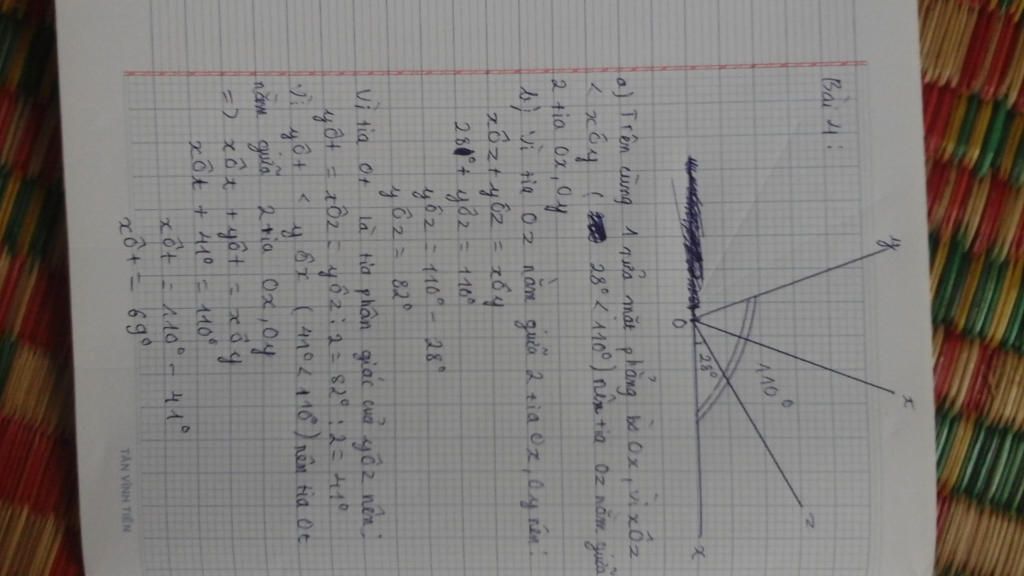 Bài 4:
y
x
z
x
O
28°
110°
a) Trên cùng 1 nửa mặt phẳng bờ Ox, vì xÔz
< xÔy ( 28° < 110°) nên tia Oz nằm giữa
2 tia Ox, Oy
b) Vì tia Oz nằm giữa 2 tia Ox, Oy nên:
xÔz + yÔz = xÔy
28° + yÔz = 110°
yÔz = 110° - 28°
yÔz = 82°
Vì tia Ot là tia phân giác của yÔz nên:
yÔt = xÔz = yÔz : 2 = 82° : 2 = 41°
Vì yÔt < yÔx ( 41° < 110°) nên tia Ot
nằm giữa 2 tia Ox, Oy
=> xÔx + yÔt = xÔy
xÔt + 41° = 110°
xÔt = 110° - 41°
xÔt = 69°
TÂN VĨNH TIẾN